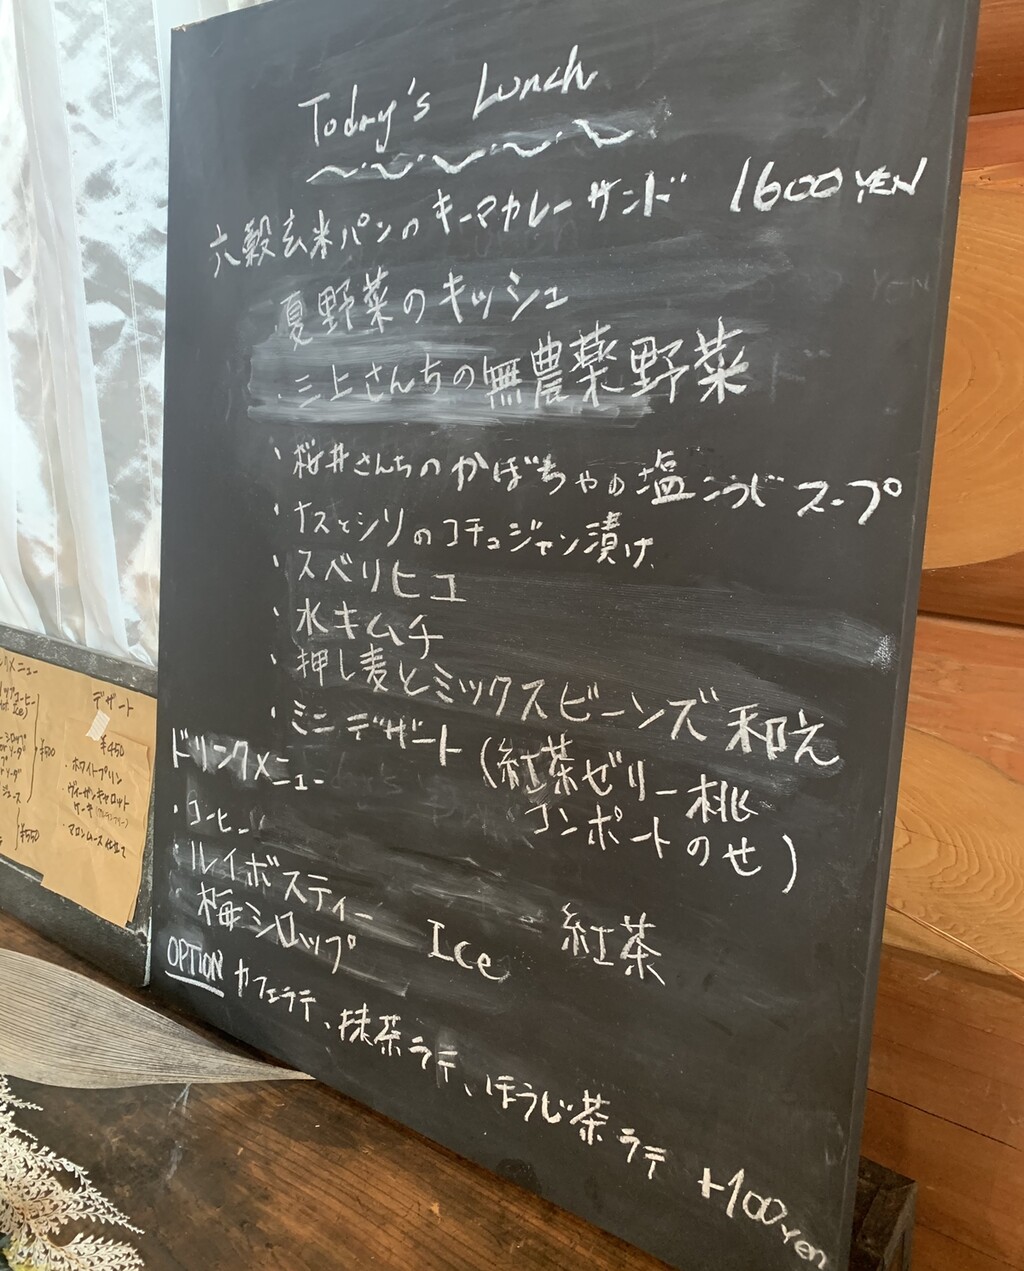 Today's Lunch
六穀玄米パンのキーマカレーサンド 1600YEN
夏野菜のキッシュ
・三上さんちの無農薬野菜
・桜井さんちのかぼちゃの塩こうじスープ
・ナスとシソのコチュジャン漬け
・スベリヒユ
・水キムチ
・押し麦とミックスビーンズ和え
・ミニデザート(紅茶ゼリー桃
コンポートのせ)
ドリンクメニュー
・コーヒー
・ルイボスティー 紅茶
・梅シロップ Ice
OPTION カフェラテ、抹茶ラテ、ほうじ茶ラテ +100yen
デザート
¥450
・ホワイトプリン
・ヴィーガンキャロット
ケーキ
・マロンムース仕立て
メニュー
¥500
¥550